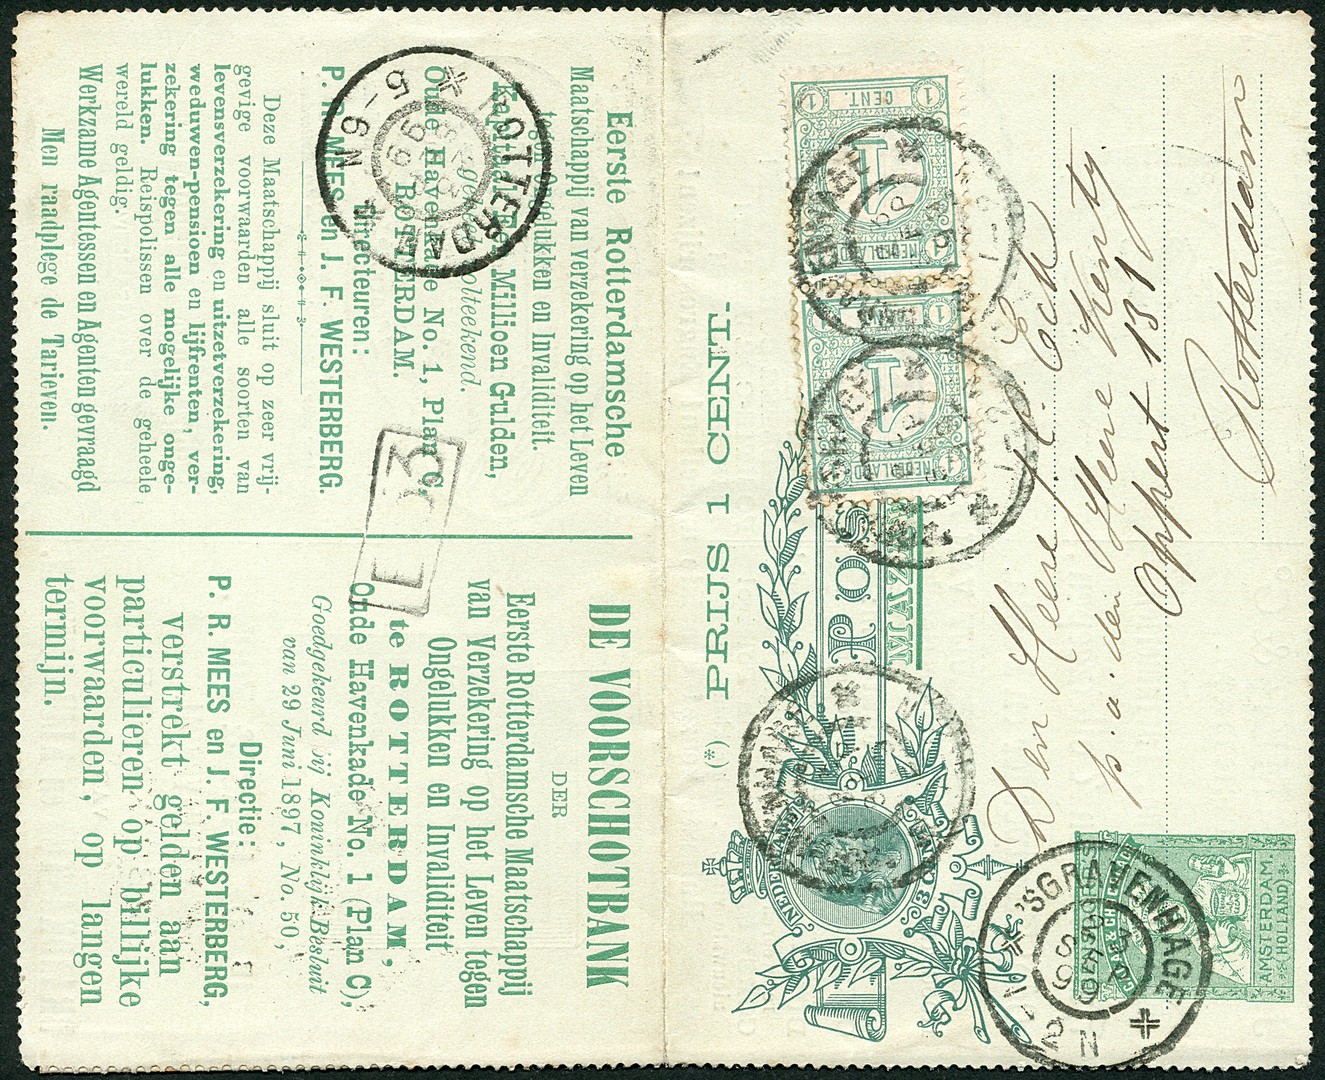 Eerste Rotterdamsche
Maatschappij van verzekering op het Leven
tegen Ongelukken en Invaliditeit.
Kapitaal: Millioen Gulden,
volteekend.
Oude Havenkade No. 1, Plan C,
ROTTERDAM.
Directeuren:
P. R. MEES en J. F. WESTERBERG.
Deze Maatschappij sluit op zeer vrij-
gevige voorwaarden alle soorten van
levensverzekering en uitzetverzekering,
weduwen-pensioen en lijfrenten, ver-
zekering tegen alle mogelijke onge-
lukken. Reispolissen over de geheele
wereld geldig.
Werkzame Agentessen en Agenten gevraagd
Men raadplege de Tarieven.
ROTTERDAM
5-6N
99
E 33
DE VOORSCHOTBANK
DER
Eerste Rotterdamsche Maatschappij
van Verzekering op het Leven tegen
Ongelukken en Invaliditeit
te ROTTERDAM,
Oude Havenkade No. 1 (Plan C),
Goedgekeurd bij Koninklijk Besluit
van 29 Juni 1897, No. 50,
Directie:
P. R. MEES en J. F. WESTERBERG,
verstrekt gelden aan
particulieren op billijke
voorwaarden, op langen
termijn.
(*) PRIJS 1 CENT.
1 CENT. 1
1
NEDERLAND
1 1
1
NEDERLAND
POS
Den Heere J. C. Eck
p. a. den Heere Kentz
Oppert 131
Rotterdam
'SGRAVENHAGE
1-2N
99
AMSTERDAM.
HOLLAND